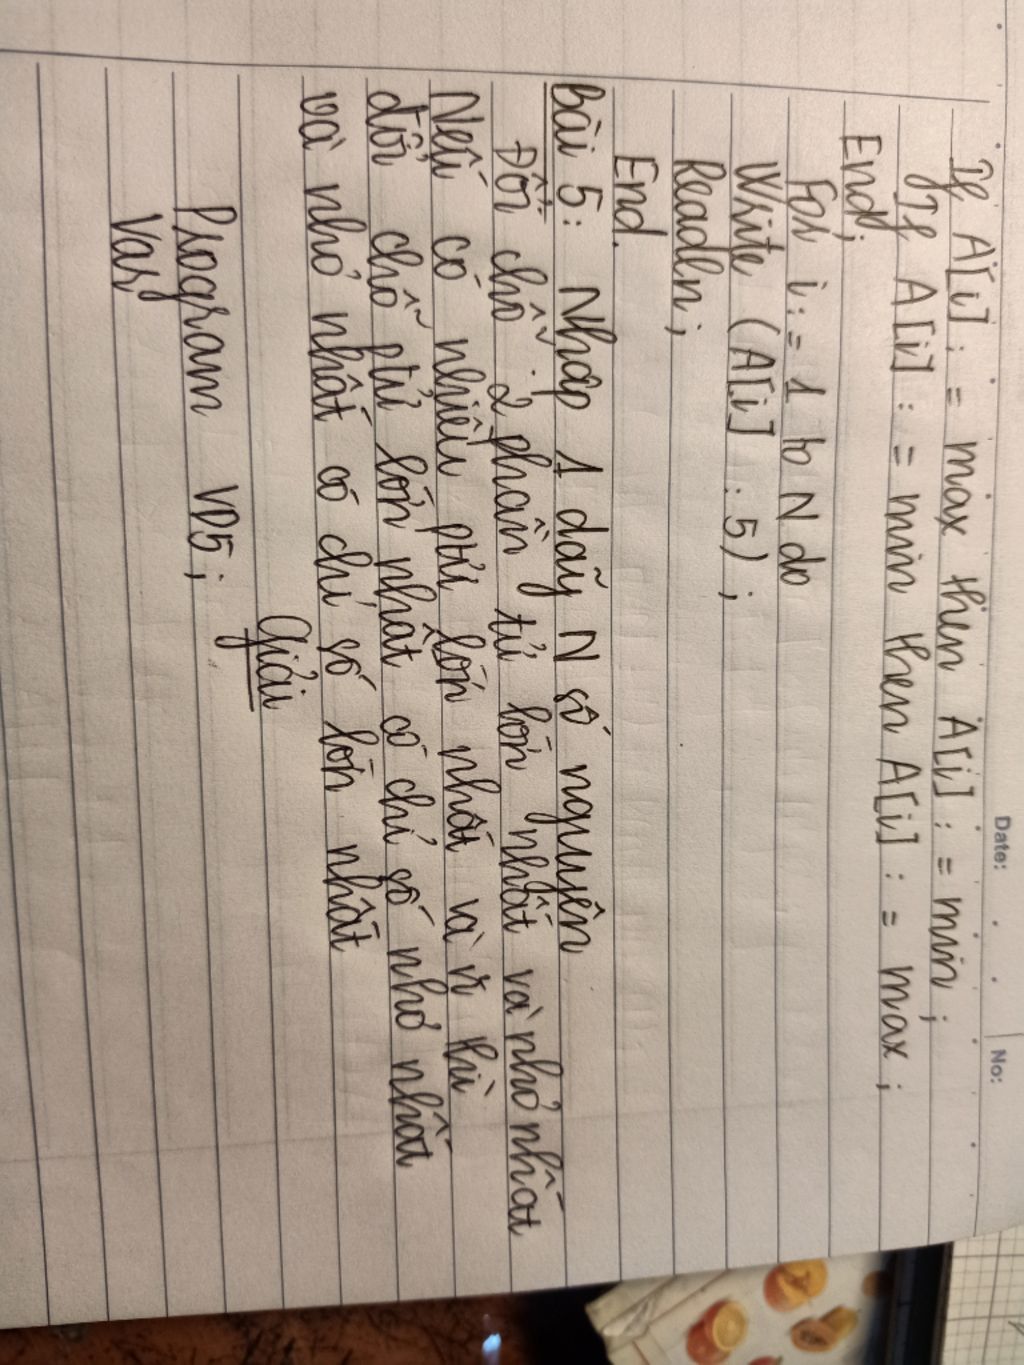 Date:
No:
If A[i] := max then A[i] := min ;
If A[i] := min then A[i] := max ;
End;
For i := 1 to N do
Write (A[i] : 5) ;
Readln ;
End.
Bài 5: Nhập 1 dãy N số nguyên
Đổi chỗ 2 phần tử lớn nhất và nhỏ nhất
Nếu có nhiều ptử lớn nhất và thì
đổi chỗ ptử lớn nhất có chỉ số nhỏ nhất
và nhỏ nhất có chỉ số lớn nhất
Giải
Program VD5;
Var